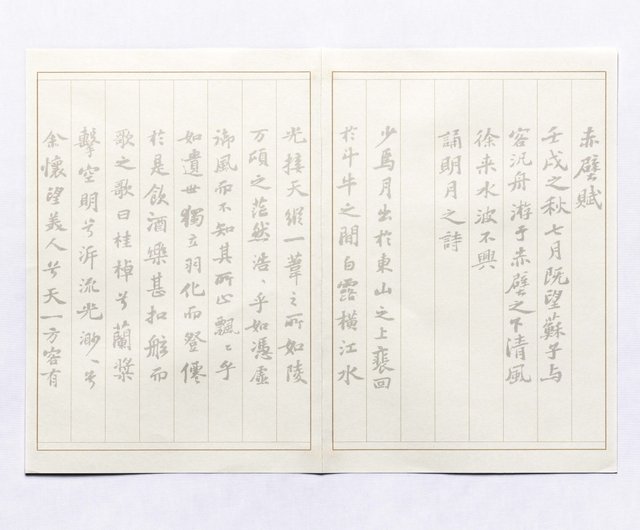 赤壁賦
壬戌之秋七月既望蘇子与
客汎舟游于赤壁之下清風
徐来水波不興
誦明月之詩
少焉月出於東山之上裵回
於斗牛之間白露橫江水
光接天縱一葦之所如陵
万頃之茫然浩〻乎如憑虛
御風而不知其所止飄〻乎
如遺世獨立羽化而登僊
於是飲酒樂甚扣舷而
歌之歌曰桂棹兮蘭槳
擊空明兮泝流光渺〻兮
余懷望美人兮天一方客有